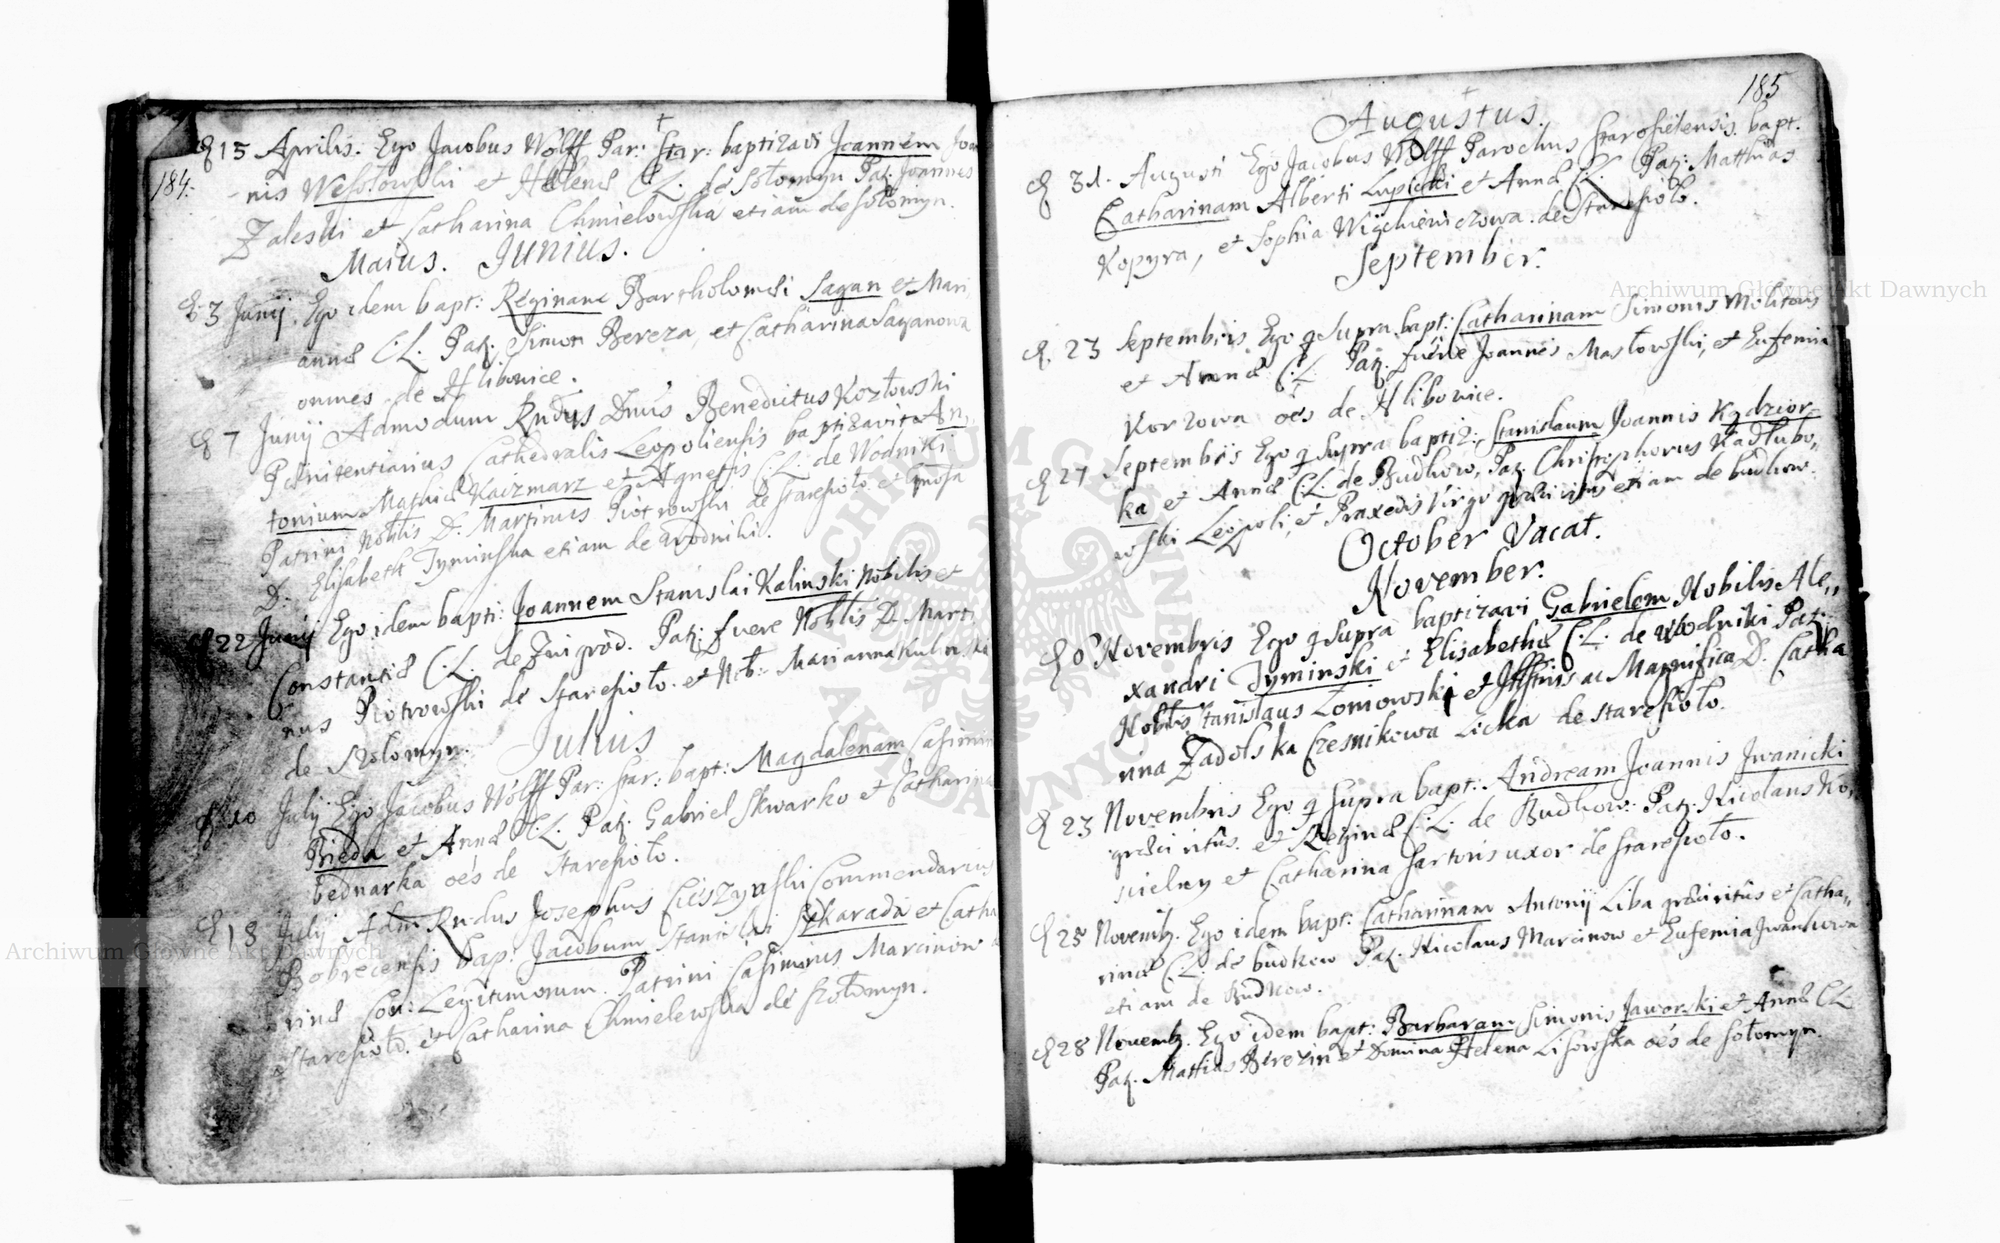 184.
15 Aprilis. Ego Jacobus Wolff Par: Star: baptizavi Joannem Joan
nis Wesołowski et Helenæ C.L. de Sołomyn Pat: Joannes
Zaleski et Catharina Chmielowska etiam de Sołomyn.
Maius. Junius.
3 Junij. Ego idem bapt: Reginam Bartholomæi Sagan et Mari,
annæ C.L. Pat: Simon Bereza, et Catharina Saganowa
omnes de Hlibovice.
7 Junij Admodum Rndus Dnus Benedictus Kozłowski
Pænitentiarius Cathedralis Leopoliensis baptizavit An,
tonium Mathiæ Kaczmarz et Agnetis C.L. de Wodniki
Patrini Nobilis D. Martinus Piotrowski de Staresioło. et
D. Elisabeth Tyminska etiam de Wodniki.
22 Junij Ego idem bapti: Joannem Stanislai Kalinski Nobilis et
Constantiæ C.L. de Zwigrod. Pat: fuere Noblis D. Mart
nus Piotrowski de Staresioło. et Nob: Marianna
de Szołomyn.
Julius
10 July Ego Jacobus Wolff Par: Star: bapt: Magdalenam Casimiri
Bieda et Annæ C.L. Pat: Gabriel Skwarko et Catharina
bednarka oẽs de Staresioło.
18 July Adm Rndus Josephus Cieszynski Commendarius
Bobrecensis bap: Jacobum Stanislai Szkarada et Catha
rinæ Con: Legitimorum. Patrini Casimirus Marcinow
Staresioło. et Catharina Chmielewska de Szołomyn.
185
Augustus.
31. Augusti Ego Jacobus Wolff Parochus Staroselensis bapt.
Catharinam Alberti Lupicki et Annæ C.L. Pat: Matthias
Kopyra, et Sophia Woychiewiczowa de Staresioło.
September.
23 Septembris Ego q supra bapt: Catharinam Simonis Molitoris
et Annæ C.L. Pat: fuere Joannes Masłowski, et Eufemia
Korzowa oẽs de Hlibovice.
27 Septembris Ego q supra baptiz: Stanislaum Joannis Kędzior,
ka et Annæ C.L. de Budkow, Pat: Christophorus Kadłubo,,
wski Leopoli, et Praxedis Virgo græci ritus etiam de budkow.
October Vacat.
November.
8 Novembris Ego q supra baptizavi Gabrielem Nobilis Ale,,
xandri Tyminski et Elisabethæ C.L. de Wodniki Pat:
Noblis Stanislaus Łoniowski et Illstris ac Magnifica D. Catha
rina Zadolska Czesnikowa Licka de Staresioło.
23 Novembris Ego q supra bapt: Andream Joannis Iwanicki
græci ritus et Reginæ C.L. de Budkow. Pat: Nicolaus Ko,
sielny et Catharina Sartoris uxor de Staresioło.
25 Novemb. Ego idem bapt: Catharinam Antonij Liba græci ritus et Catha,,
rinæ C.L. de budkow Pat: Nicolaus Marcinow et Eufemia Iwankowa
etiam de Budkow.
28 Novemb. Ego idem bapt: Barbaram Simonis Jaworski et Annæ C.L.
Pat: Mathias Berezin et Domina Helena Lisowska oẽs de Sołomyn.
Archiwum Główne Akt Dawnych
Archiwum Główne Akt Dawnych
ARCHIWUM GŁÓWNE
AKT DAWNYCH